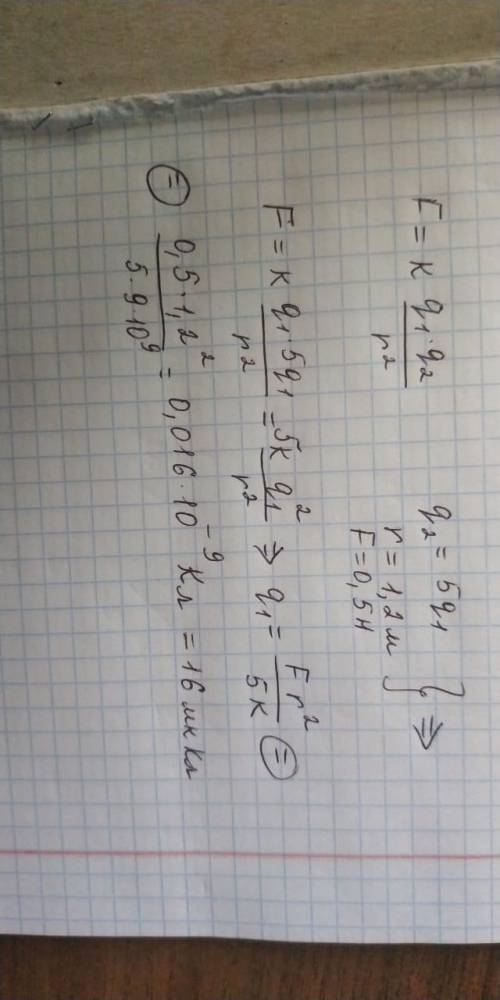 F = к q₁·q₂ / r²
q₂ = 5q₁
r = 1,2 м
F = 0,5 Н } ⇒
F = к q₁·5q₁ / r² = 5к q₁² / r² ⇒ q₁ = F r² / 5к ⊜
⊜ 0,5·1,2² / 5·9·10⁹ = 0,016·10⁻⁹ Кл = 16 мкКл